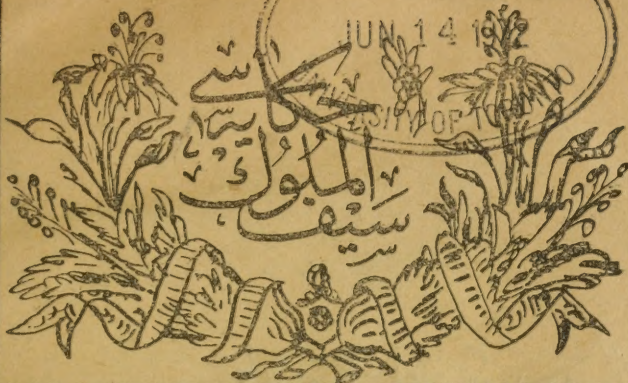 JUN 14
UNIVERSITY OF TORONTO
سيف الملوك
حكايه سى